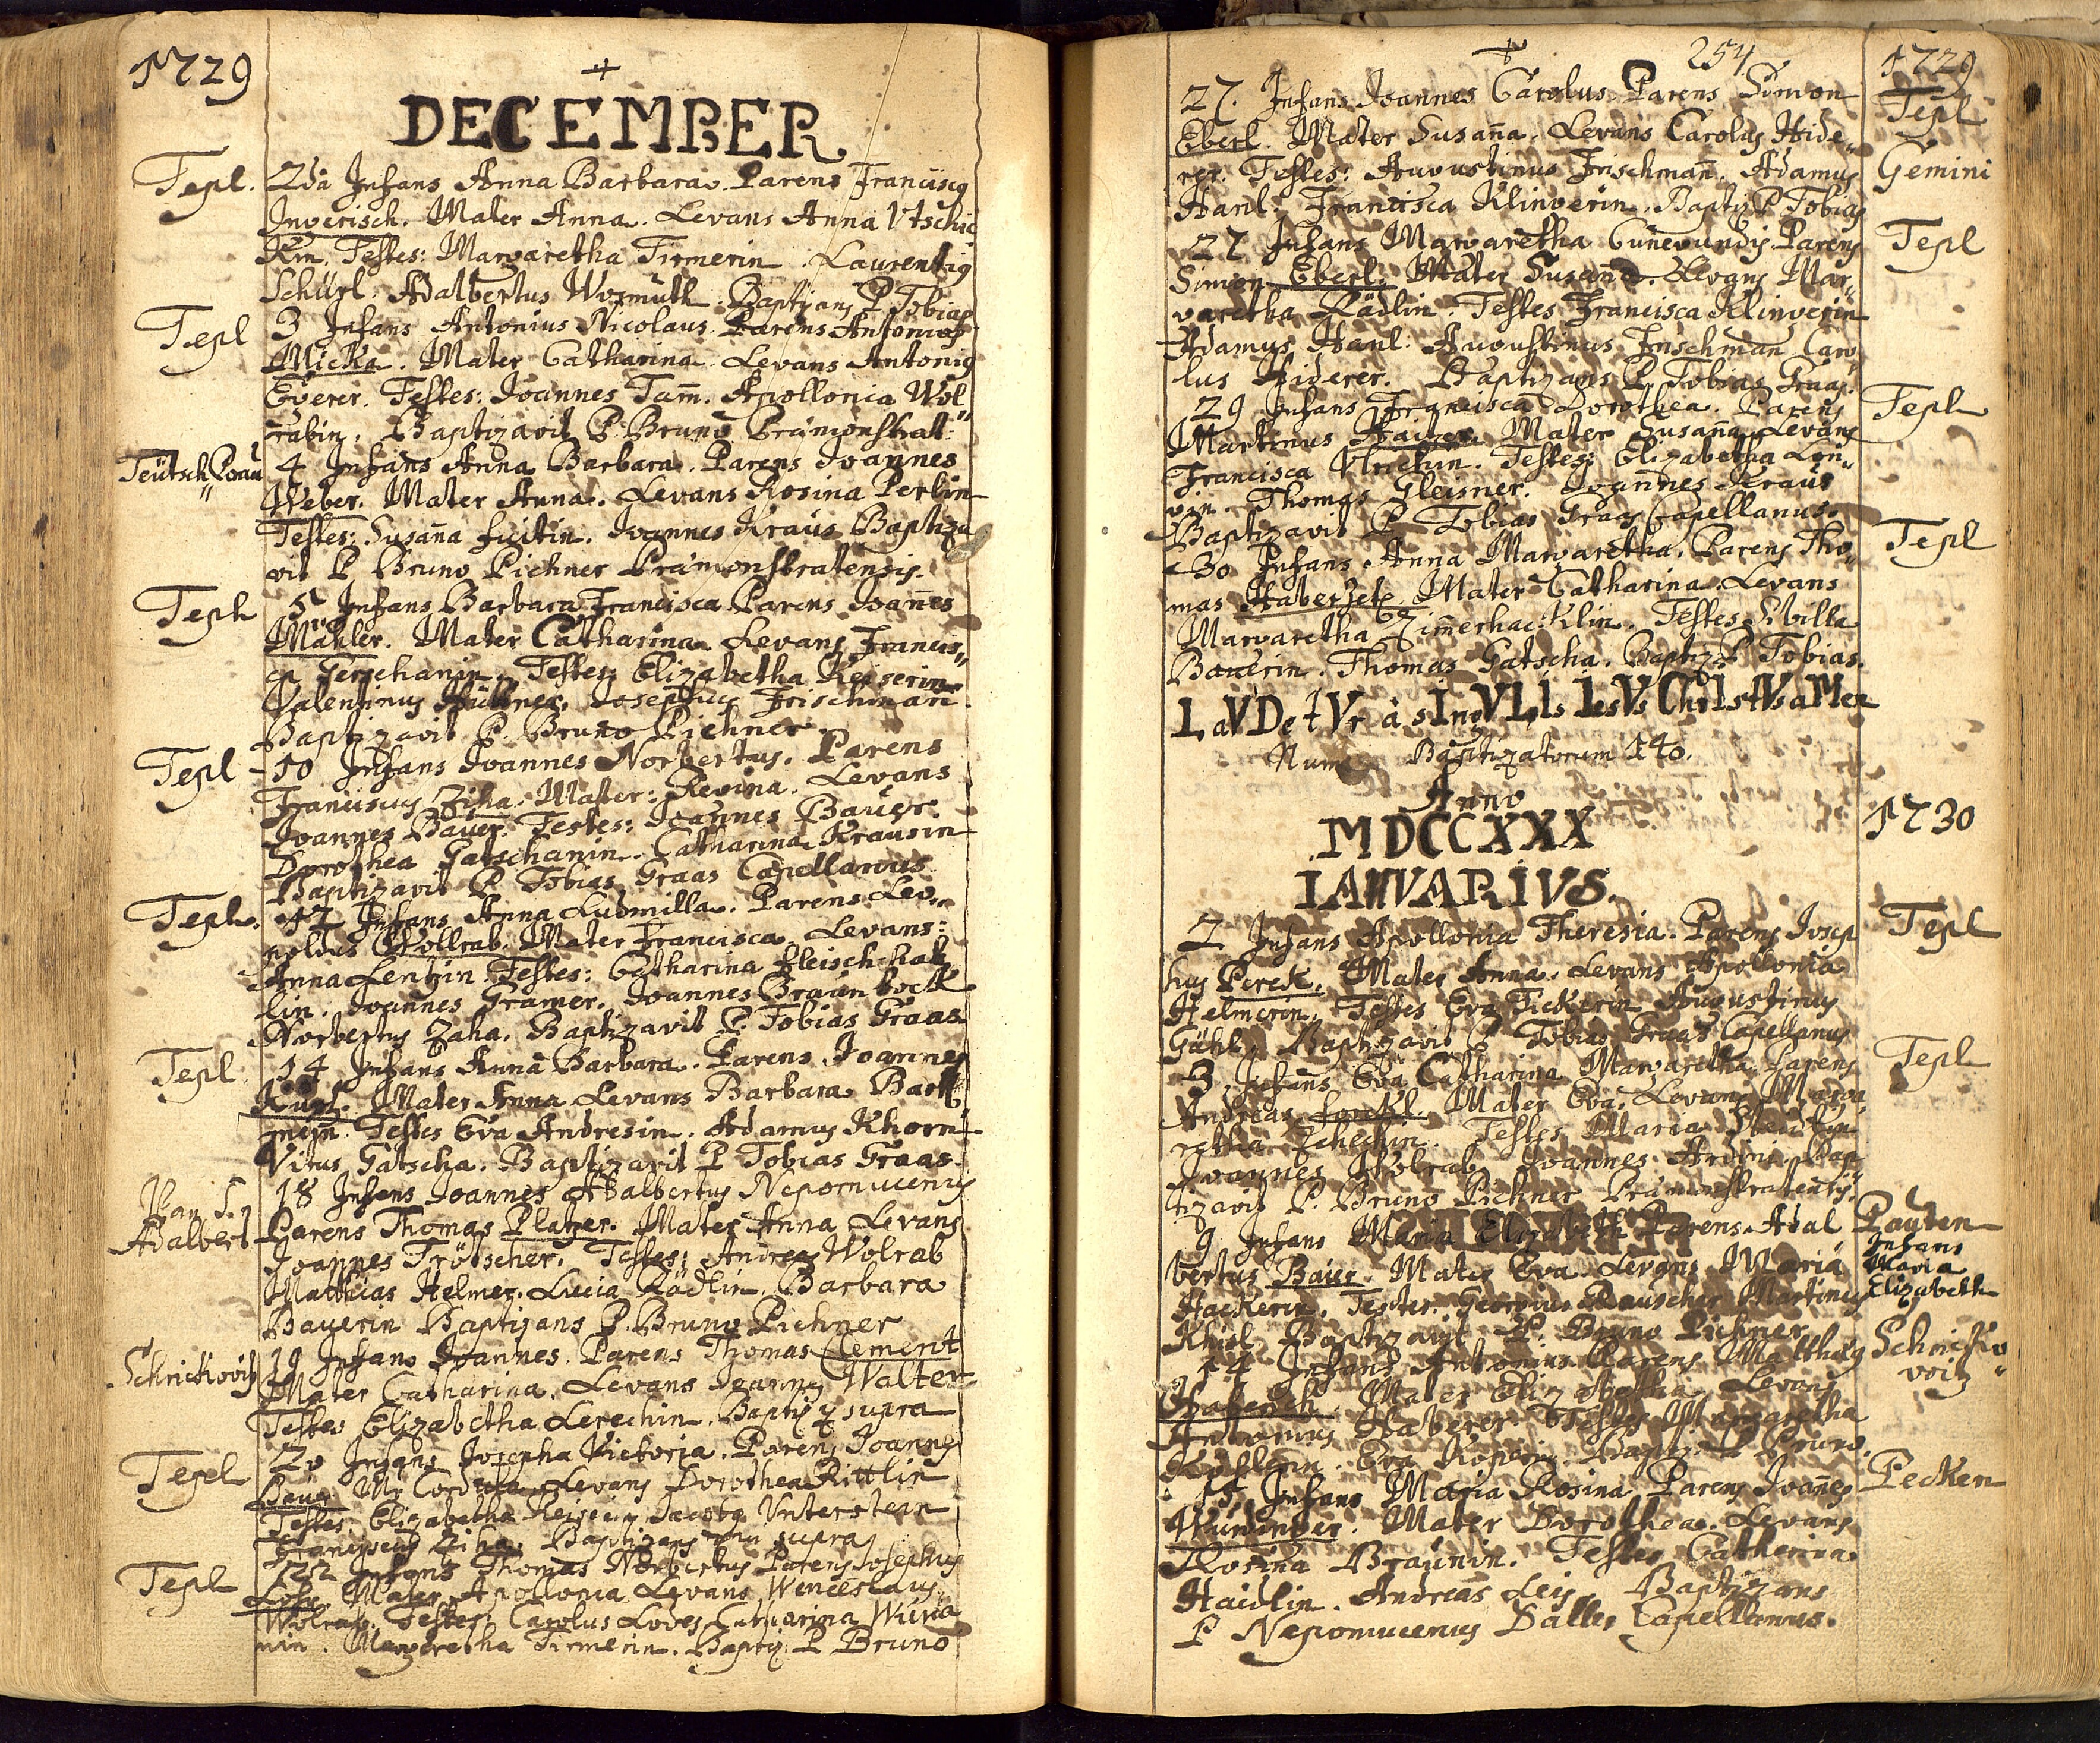 1729
+
DECEMBER
Tepl. 2da Infans Anna Barbara. Parens Franciscq
Ingerisch. Mater Anna. Levans Anna Vtschic
Kin. Testes: Margaretha Firmerin. Laurentiq
Schürl. Adalbertus Wormuth. Baptizans P Tobias
Tepl 3 Infans Antonius Nicolaus. Parens Antonius
Micka. Mater Catharina. Levans Antoniq
Egerer. Testes: Joannes Tam̃. Apollonia Wol„
rabin. Baptizavit P. Bruno Præmonstrat:
Teütsch„ 4 Infans Anna Barbara. Parens Joannes
Weber. Mater Anna. Levans Rosina Perlin
Testes: Susaña Joannes Kraus Baptiza
vit P Bruno Pichner Præmonstratensis.
Tepl 5 Infans Barbara Francisca Parens Joañes
Mahler. Mater Catharina. Levans Francis„
ca Testes Elizabetha Keiserin
Valentinus Hüttner. Josephus Frischman
Baptizavit P. Bruno Pichner.
Tepl 10 Infans Joannes Norbertus. Parens
Franciscus Ziha. Mater: Regina. Levans
Joannes Bauer. Testes: Joannes Bauer.
Dorothea Gatschanin. Catharina Krausin
Baptizavit P Tobias Graas Capellanus
Tepl. 12 Infans Anna Ludmilla. Parens Leo„
poldus Wollrab. Mater Francisca Levans:
Anna Lentzin Testes: Catharina fleisch hak
lin. Joannes Gramer. Joannes Braun bock
Norbertus Zaha. Baptizavit P. Tobias Graas
Tepl 14 Infans Anna Barbara. Parens Joannes
Mater Anna Levans Barbara Bart
Testes Eva Andresin. Adamus Khorn
Vitus Gatscha. Baptizavit P Tobias Graas.
S. 18 Infans Joannes Adalbertus Nepomucenus
Adalbert Parens Thomas Platzer. Mater Anna Levans
Joannes Trötscher. Testes: Andreas Wolrab
Matthias Helmer. Lucia Rädlin. Barbara
Bauerin Baptizans P. Bruno Pichner
Schrickovitz 19 Infans Joannes. Parens Thomas Clement
Mater Catharina. Levans Joannes Walter
Testes Elizabetha Lerechin. Baptiz: supra
Tepl 20 Infans Josepha Victoria. Parens Joannes
Baur Mr Cordula Levans Dorothea Rittlin
Testes Elizabetha Jacobq Unterstein
Franciscus Ziha. Baptizans supra
Tepl 22 Infans Thomas Norbertus Parens Josephus
Mater Apollonia Levans Wenceslaus
Wolrab. Testes: Carolus Catharina
nin. Margaretha Firmerin. Baptiz. P Bruno
+ 254
1729
27. Infans Joannes Carolus Parens Simon Tepl
Eberl. Mater Susaña. Levans Carolus Hide„
rer. Testes: Augustinus Frischmañ. Adamus Gemini
Hanl. Francisca Klingerin. Baptiz P Tobias
27 Infans Margaretha Cunegundis Parens Tepl
Simon Eberl. Mater Susaña. Levans Mar„
garetha Rädlin. Testes Francisca Klingerin
Adamus Hanl. Augustinus Frischman Caro
lus Hiderer. Baptizans P. Tobias Graas.
29 Infans Francisca Dorothea. Parens Tepl
Martinus Mater Susaña Levans
Francisca Testes: Elizabetha Lon„
gin. Thomas Gleisner. Joannes Kraus
Baptizavit P Tobias Graas Capellanus.
30 Infans Anna Margaretha. Parens Tho„ Tepl
mas Haberzetl. Mater Catharina Levans
Margaretha Zim̃erhac:Klin. Testes Sibilla
Bauerin. Thomas Gatscha. Baptiz P Tobias.
LaVDetVr à sIngVLIs IesVs ChrIstVs aMen
Num: Baptizatorum 140.
Anno
MDCCXXX 1730
IANVARIVS.
2 Infans Apollonia Theresia. Parens Josep Tepl
hus Perek. Mater Anna. Levans Apollonia
Helmerin. Testes Eva Fickerin Augustinus
Gahl. Baptizavit P Tobias Graas Capellanus
3 Infans Eva Catharina Margaretha. Parens Tepl
Andreas Mater Eva. Levans Marga
retha Testes Maria
Joannes Wolrab. Joannes Bap„
tizavit P. Bruno Pichner Præmonstratensis.
9 Infans Maria Elizabeth Parens Adal Pauten
Infans
Maria
Elizabeth
bertus Baier. Mater Eva Levans Maria
Hackerin. Testes Georgius Rauscher Martinus
Khisl Baptizavit P. Bruno Pichner
14 Infans Antonius Parens Matthæq Schricko
voitz
Mater Elizabetha Levans
Antonius Haberer Testes Margaretha
Eva Baptiz P Bruno.
15 Infans Maria Rosina Parens Joañes Pecken
Mater Dorothea. Levans
Rosina Braunin. Testes Catherina
Haidlin. Andreas Leis. Baptizans
P Nepomucenus Capellanus.